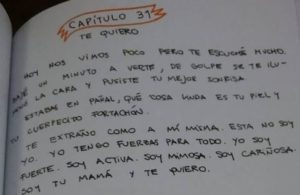 CAPÍTULO 31
TE QUIERO
HOY NOS VIMOS POCO PERO TE ESCUCHÉ MUCHO.
BAJÉ UN MINUTO A VERTE, DE GOLPE SE TE ILU-
MINÓ LA CARA Y PUSISTE TU MEJOR SONRISA.
ESTABAS EN PAÑAL, QUÉ COSA LINDA ES TU PIEL Y
TU CUERPECITO FORTACHÓN.
TE EXTRAÑO COMO A MÍ MISMA. ESTA NO SOY
YO. YO TENGO FUERZAS PARA TODO. YO SOY
FUERTE. SOY ACTIVA. SOY MIMOSA. SOY CARIÑOSA.
SOY TU MAMÁ Y TE QUIERO.